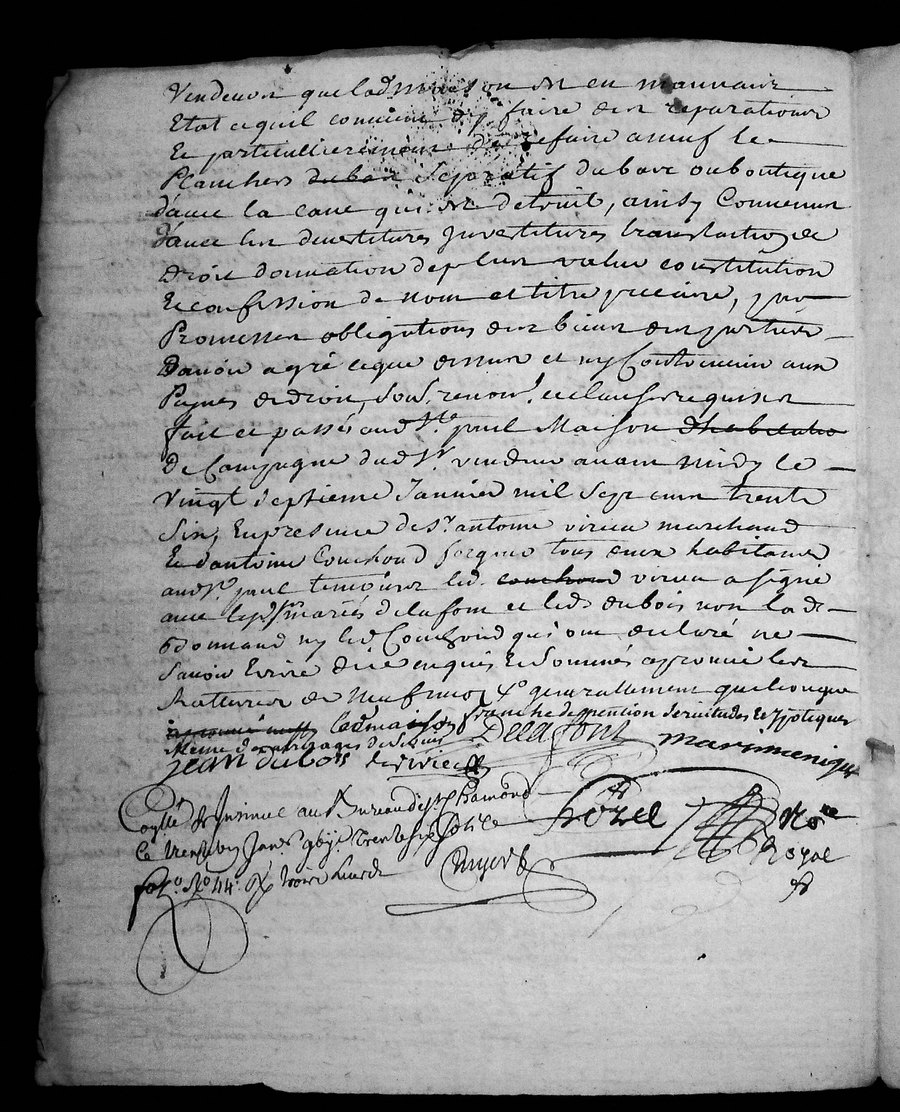 Vendeur que lad maison est en mauvaix
Etat et quil convient dy faire des reparations
Et particullierement de refaire a neuf le
Planchers du bas separatif du bace ou boutique
d'avec la cave qui est detruit, ainsy Convenu
Avec les devestitures Investitures translation de
Droit donnation de plus value constitution
Et confession de nom et titre precaire, par
Promesses obligations des biens des parties
Davoir agré ce que dessus et ny Contrevenir aux
Peynes de droit, sous, renon.s et clauses requises
fait et passés aud St paul Maison dhabitatio
De Campagne dud Sr. vendeur avant midy le
Vingt septieme Janvier mil sept cent trente
Six, En presence de sr. antoine virieu marchand
Et d'antoine Couchoud forgeur tous deux habitants
aud St. paul temoins led. couchoud virieu a signé
avec lesd srs mariés delafont et led dubois non lad
donnand ny led Couchoud qui ont declaré ne
Savoir Ecrire de ce enquis Et sommés approuvé les
Ratteures de neuf mots 4o generallement quelconque
approuvé lad maison franche de pention servitudes et ypoteques
Meme darreyrages de
jean dubois Delafont marimenique
virieu
Collé & Insinué au Bureau de st Chamond
Le trente un janv. gbij trente six
fol. no 44. Rx trois livres
Fozel Nore
Royal